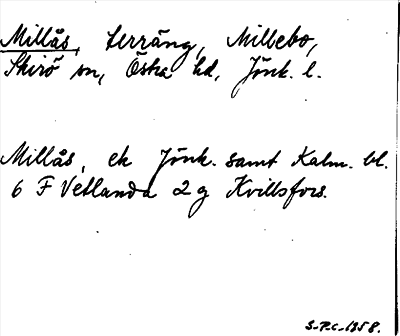 Millås, terräng, Millebo,
Skirö sn, Östra hd, Jönk. l.
Millås, ek Jönk. samt Kalm. bl.
6 F Vetlanda 2 g Kvillsfors.
S-P.C.-1958.